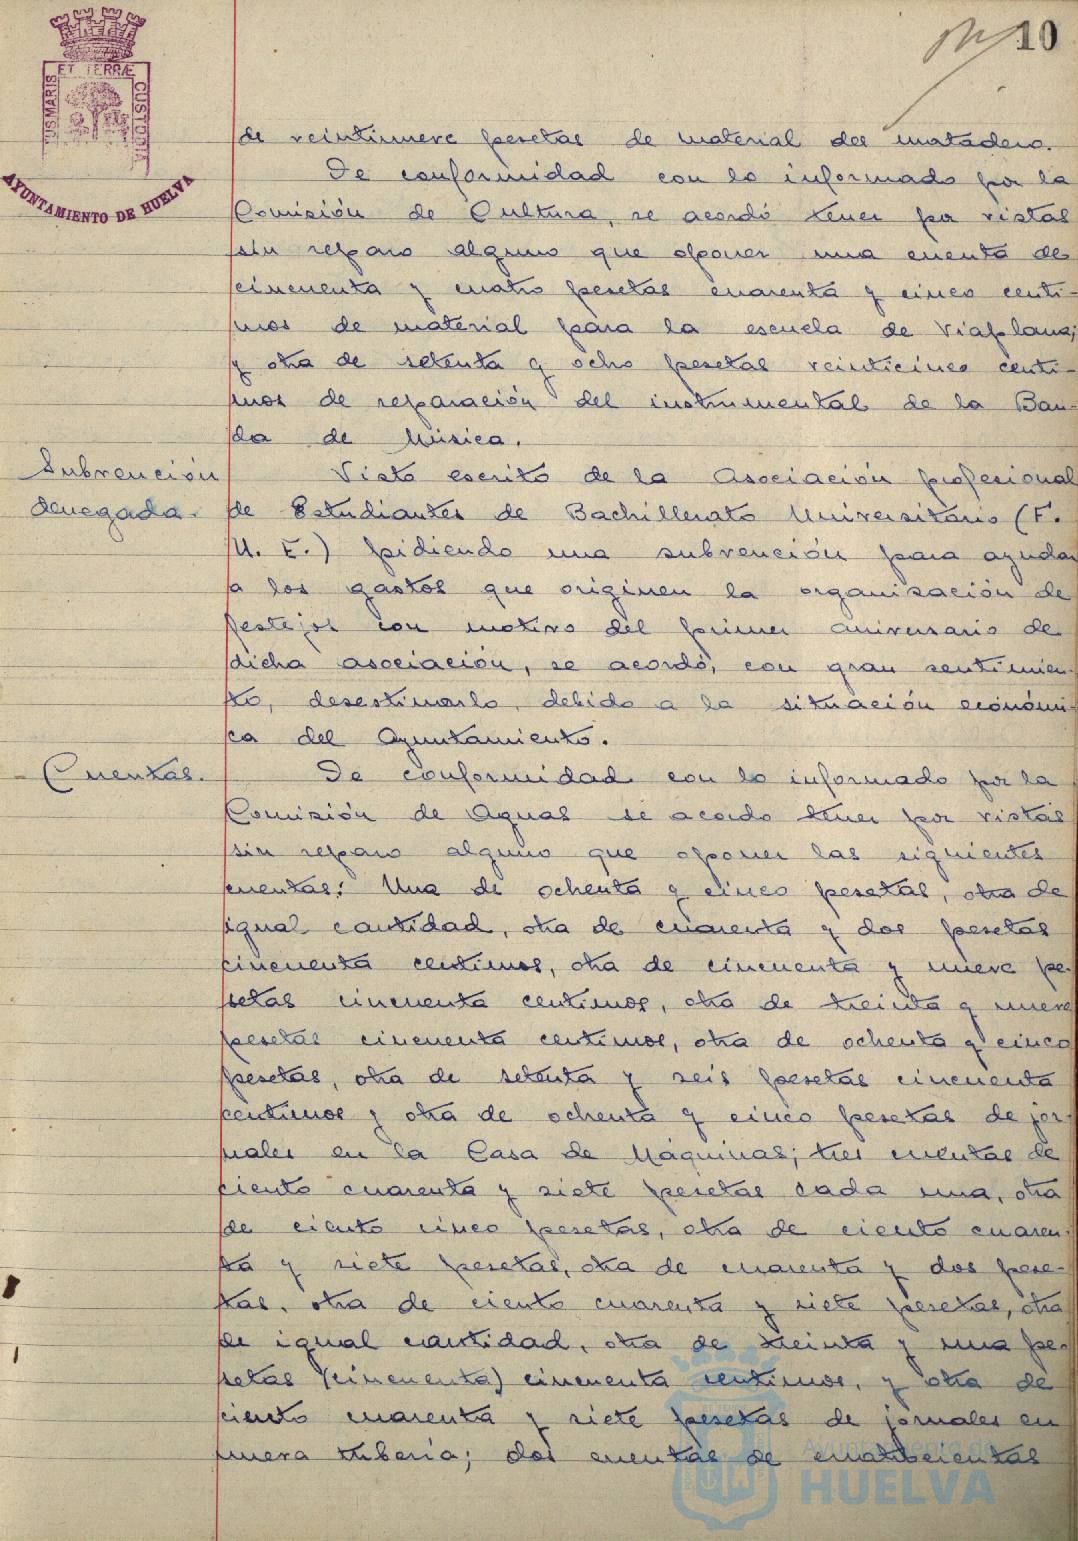 10
ET TERRÆ
US MARIS
CUSTODIA
AYUNTAMIENTO DE HUELVA
de veintinueve pesetas de material del matadero.
De conformidad con lo informado por la
Comisión de Cultura, se acordó tener por vistas
sin reparo alguno que oponer una cuenta de
cincuenta y cuatro pesetas cuarenta y cinco centi-
mos de material para la escuela de Viaplana;
y otra de setenta y ocho pesetas veinticinco centi-
mos de reparación del instrumental de la Ban-
da de Música.
Subvención
denegada.
Visto escrito de la Asociación profesional
de Estudiantes de Bachillerato Universitario (F.
U. E.) pidiendo una subvención para ayudar
a los gastos que originen la organización de
festejos con motivo del primer aniversario de
dicha asociación, se acordó, con gran sentimien-
to, desestimarlo, debido a la situación económi-
ca del Ayuntamiento.
Cuentas.
De conformidad con lo informado por la
Comisión de Aguas se acordo tener por vistas
sin reparo alguno que oponer las siguientes
cuentas: Una de ochenta y cinco pesetas, otra de
igual cantidad, otra de cuarenta y dos pesetas
cincuenta centimos, otra de cincuenta y nueve pe-
setas cincuenta centimos, otra de treinta y nueve
pesetas cincuenta centimos, otra de ochenta y cinco
pesetas, otra de setenta y seis pesetas cincuenta
centimos y otra de ochenta y cinco pesetas de jor-
nales en la Casa de Máquinas; tres cuentas de
ciento cuarenta y siete pesetas cada una, otra
de ciento cinco pesetas, otra de ciento cuaren-
ta y siete pesetas, otra de cuarenta y dos pese-
tas, otra de ciento cuarenta y siete pesetas, otra
de igual cantidad, otra de treinta y una pe-
setas (cincuenta) cincuenta centimos, y otra de
ciento cuarenta y siete pesetas de jornales en
nueva tubería; dos cuentas de cuatrocientas
Ayuntamiento de
HUELVA